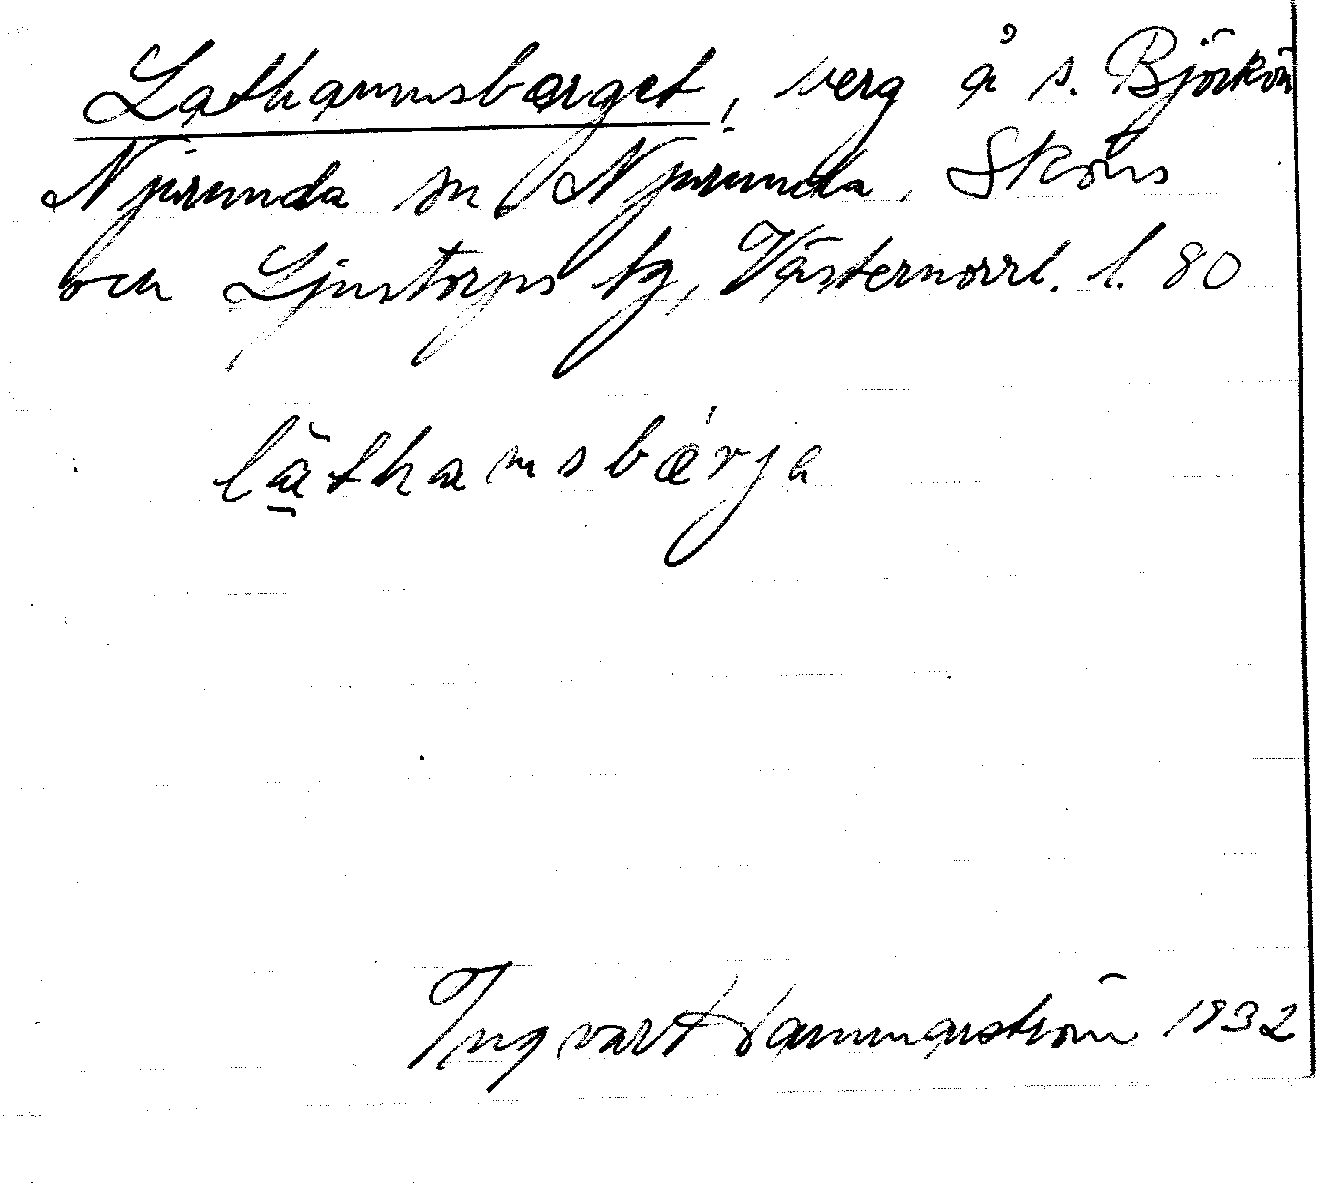 Lathamnsbärget, berg å s. Björkön
Njurunda sn Njurunda, Sköns
och Ljustorps tg, Västernorrl. l. 80
làthamsbǽrja
Ingvar Hammarström 1932